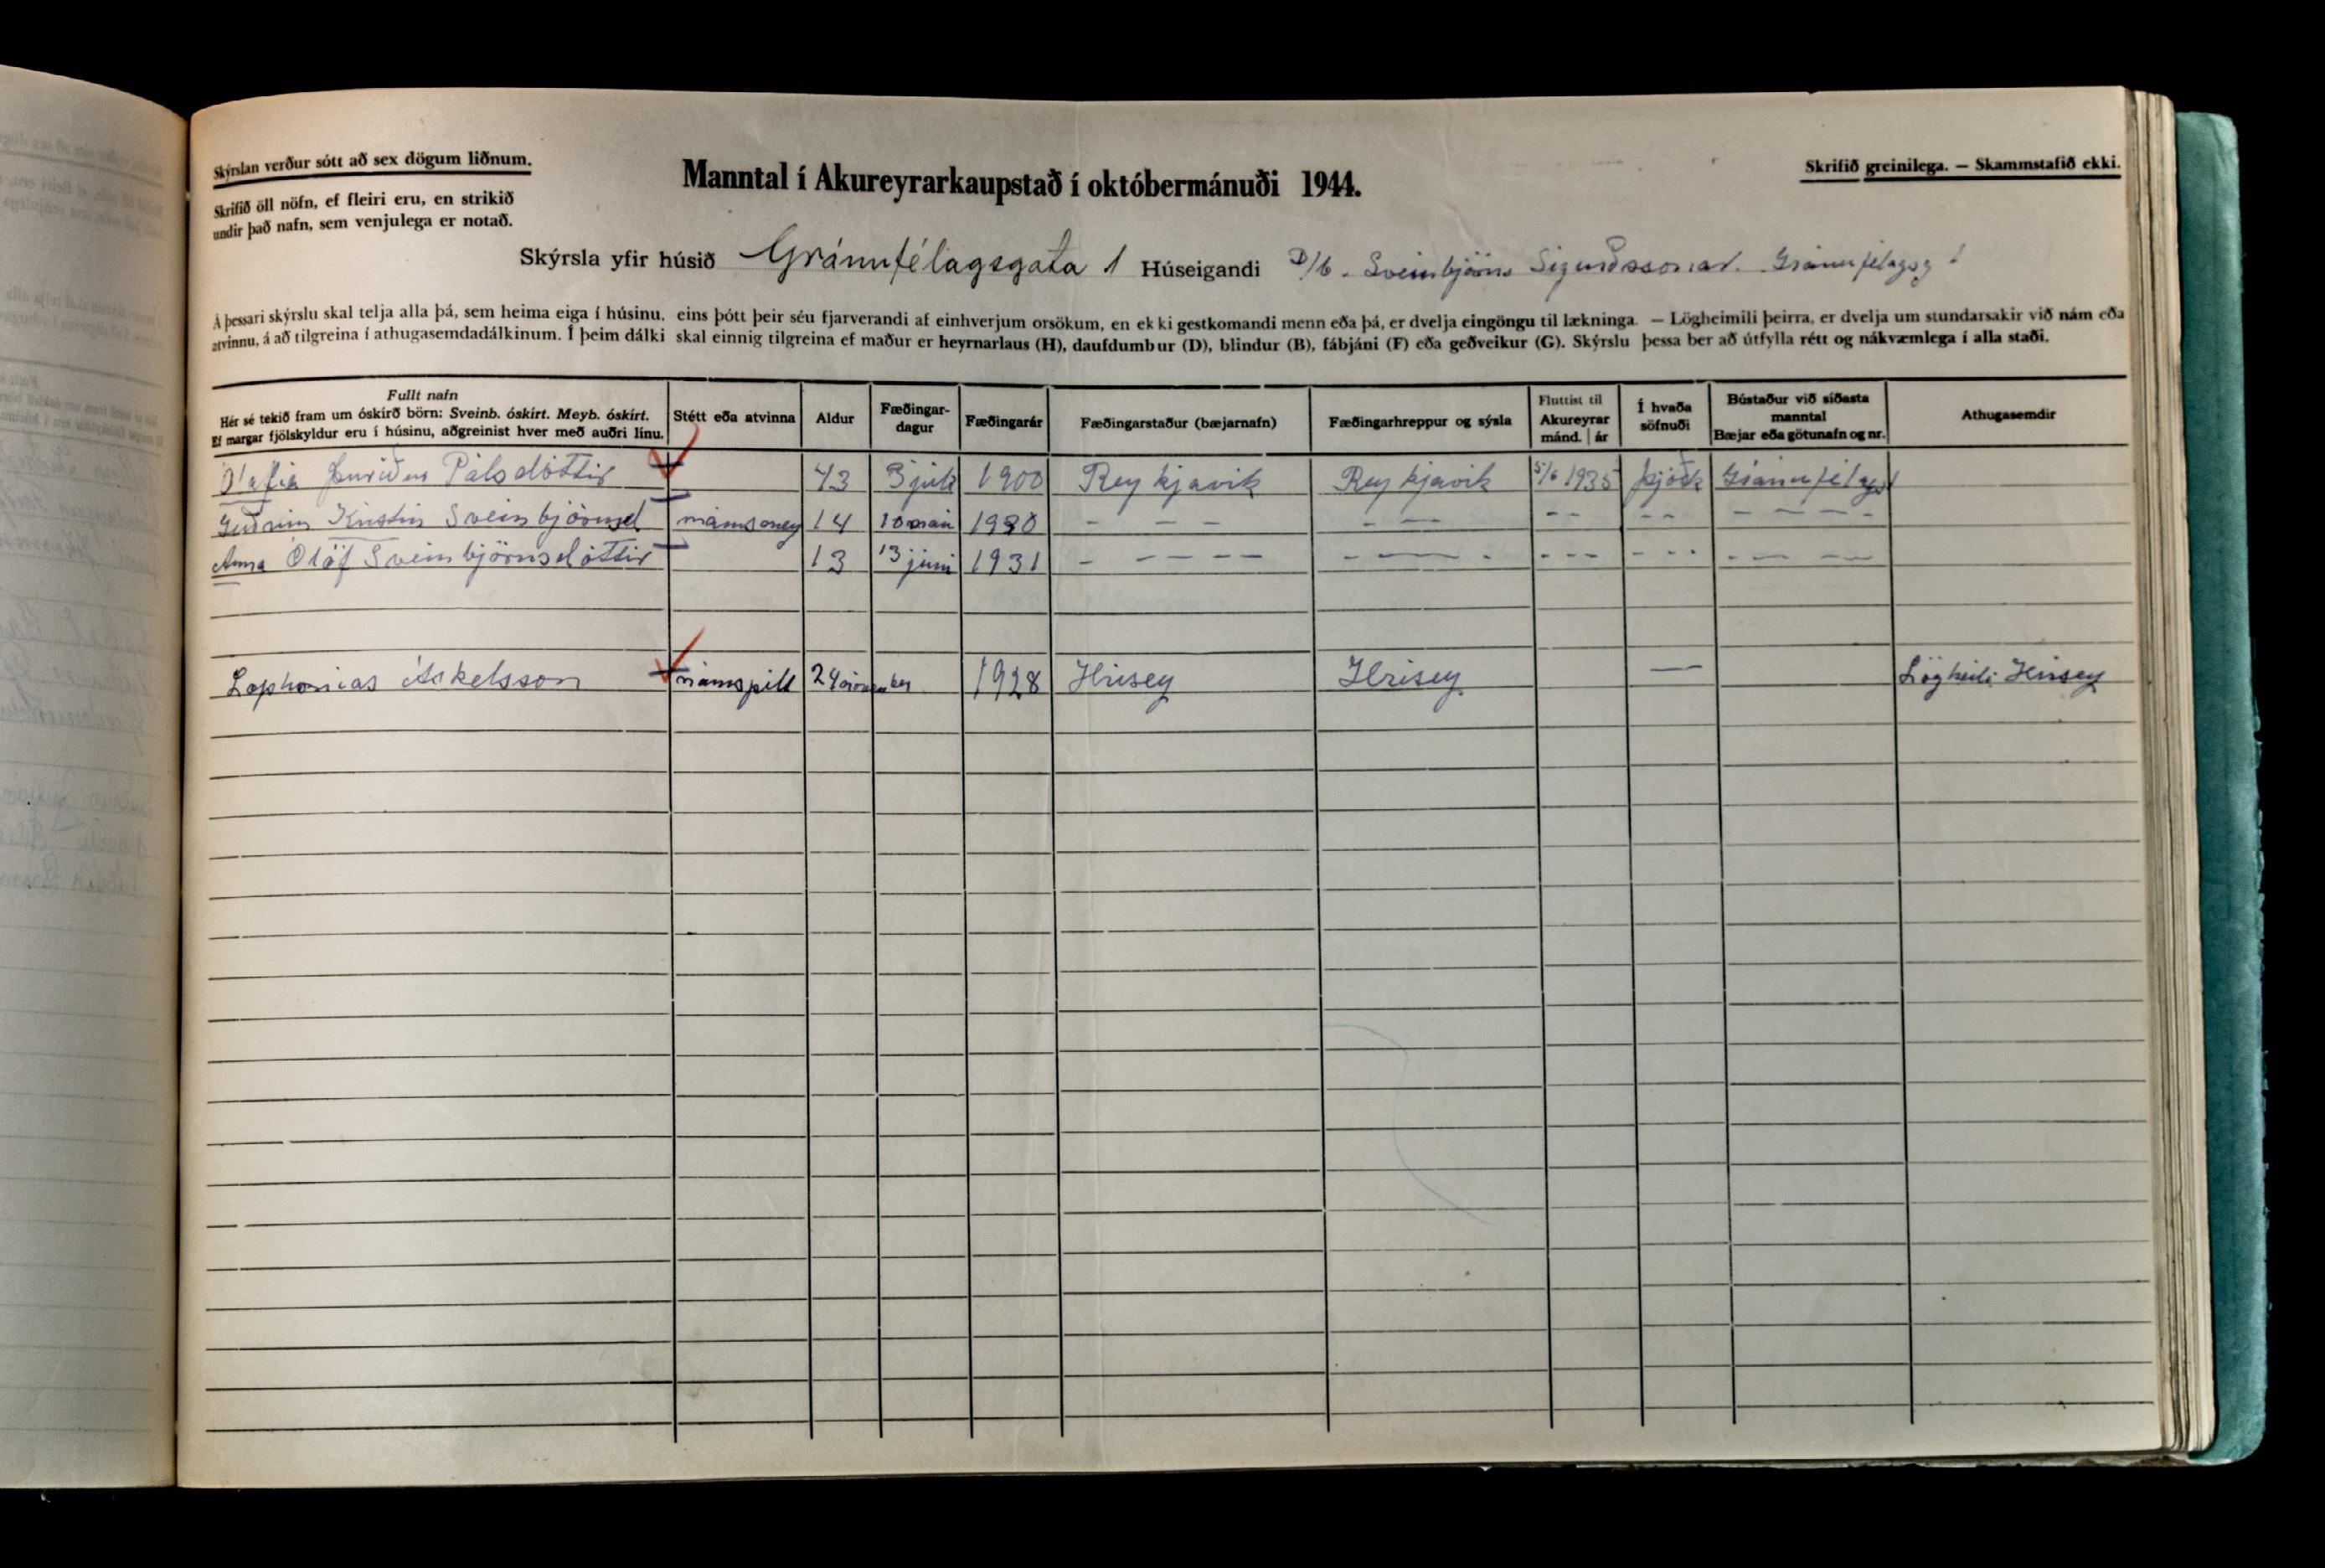 Skýrslan verður sótt að sex dögum liðnum.
Skrifið öll nöfn, ef fleiri eru, en strikið
undir það nafn, sem venjulega er notað.
Manntal í Akureyrarkaupstað í októbermánuði 1944.
Skrifið greinilega. — Skammstafið ekki.
Skýrsla yfir húsið Gránufélagsgata 1 Húseigandi D/b. Sveinbjörns Sigurðssonar. Gránufélagsg 1
Á þessari skýrslu skal telja alla þá, sem heima eiga í húsinu, eins þótt þeir séu fjarverandi af einhverjum orsökum, en ekki gestkomandi menn eða þá, er dvelja eingöngu til lækninga. — Lögheimili þeirra, er dvelja um stundarsakir við nám eða
atvinnu, á að tilgreina í athugasemdadálkinum. Í þeim dálki skal einnig tilgreina ef maður er heyrnarlaus (H), daufdumbur (D), blindur (B), fábjáni (F) eða geðveikur (G). Skýrslu þessa ber að útfylla rétt og nákvæmlega í alla staði.
Fullt nafn
Hér sé tekið fram um óskírð börn: Sveinb. óskírt. Meyb. óskírt.
Ef margar fjölskyldur eru í húsinu, aðgreinist hver með auðri línu.
Stétt eða atvinna
Aldur
Fæðingar-
dagur
Fæðingarár
Fæðingarstaður (bæjarnafn)
Fæðingarhreppur og sýsla
Fluttist til
Akureyrar
mánd. | ár
Í hvaða
söfnuði
Bústaður við síðasta
manntal
Bæjar eða götunafn og nr.
Athugasemdir
Ólafía Þuríður Pálsdóttir 43 3 júlí 1900 Reykjavik Reykjavik 5/6 1935 þjóðk Gránufélagsg 1
Guðrún Kristín Sveinbjörnsd námsmey 14 10 maí 1930 – – – – – – – – – – – – –
Anna Ólöf Sveinbjörnsdóttir 13 13 júní 1931 – – – – – – – – – – – – – – – – –
Zophonías Áskelsson námspilt 24 nóvember 1928 Hrísey Hrisey — Lögheili Hrísey